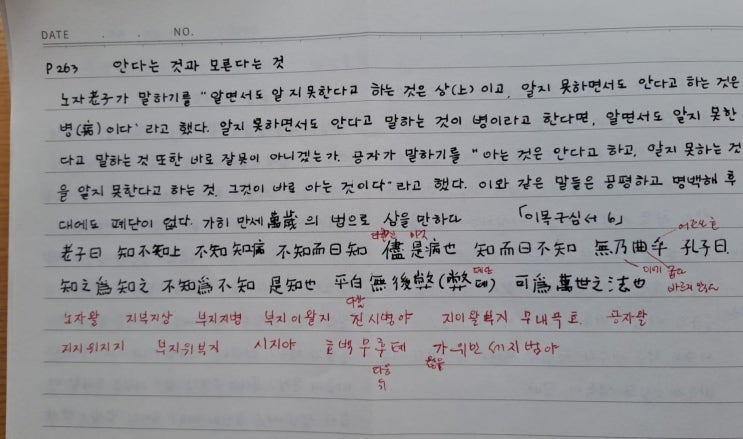 DATE . . NO.
P263 안다는 것과 모른다는 것
노자老子가 말하기를 "알면서도 알지 못한다고 하는 것은 상(上)이고, 알지 못하면서도 안다고 하는 것은
병(病)이다" 라고 했다. 알지 못하면서도 안다고 말하는 것이 병이라고 한다면, 알면서도 알지 못한
다고 말하는 것 또한 바로 잘못이 아니겠는가. 공자가 말하기를 "아는 것은 안다고 하고, 알지 못하는 것
을 알지 못한다고 하는 것, 그것이 바로 아는 것이다"라고 했다. 이와 같은 말들은 공평하고 명백해 후
대에도 폐단이 없다. 가히 만세萬歲의 법으로 삼을 만하다 「이목구심서 6」
이것 어조사 호
老子曰 知不知上 不知知病 不知而曰知 儘是病也 知而曰不知 無乃曲乎 孔子曰
이에 굽다
知之為知之 不知爲不知 是知也 平白無後弊(弊폐) 可爲萬世之法也
다할
노자왈 지부지상 부지지병 부지이왈지 진시병야 지이왈부지 무내곡호 공자왈
지지위지지 부지위부지 시지야 평백무후폐 가위만세지법야
다음
뒤